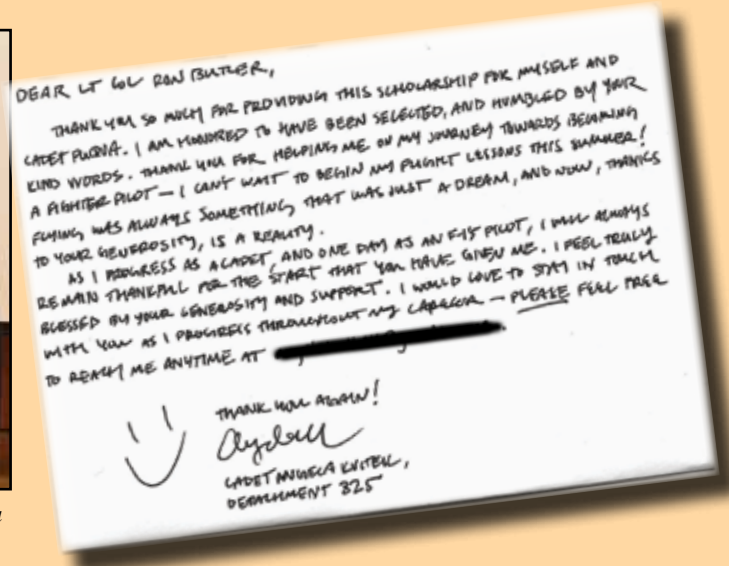 DEAR LT COL RON BUTLER,
THANK YOU SO MUCH FOR PROVIDING THIS SCHOLARSHIP FOR MYSELF AND
CADET. I AM HONORED TO HAVE BEEN SELECTED, AND HUMBLED BY YOUR
KIND WORDS. THANK YOU FOR HELPING ME ON MY JOURNEY TOWARDS BECOMING
A FIGHTER PILOT — I CAN'T WAIT TO BEGIN MY FLIGHT LESSONS THIS SUMMER!
FLYING WAS ALWAYS SOMETHING THAT WAS JUST A DREAM, AND NOW, THANKS
TO YOUR GENEROSITY, IS A REALITY.
AS I PROGRESS AS A CADET, AND ONE DAY AS AN F15 PILOT, I WILL ALWAYS
REMAIN THANKFUL FOR THE START THAT YOU HAVE GIVEN ME. I FEEL TRULY
BLESSED BY YOUR GENEROSITY AND SUPPORT. I WOULD LOVE TO STAY IN TOUCH
WITH YOU AS I PROGRESS THROUGHOUT MY CAREER — PLEASE FEEL FREE
TO REACH ME ANYTIME AT
THANK YOU AGAIN!
CADET ANGELA
DETACHMENT 325